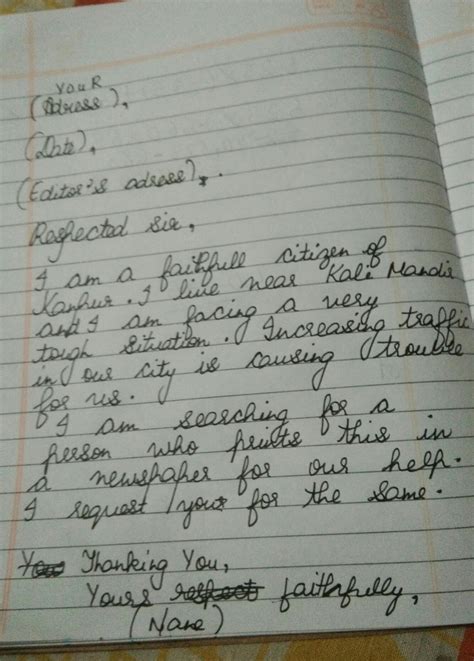 YouR
(Adress),
(Date),
(Editor's adress),.
Respected Sir,
I am a faithfull citizen of
Kanpur. I live near Kali Mandir
and I am facing a very
tough situation. Increasing traffic
in our city is causing trouble
for us.
I am searching for a
person who prints this in
a newspaper for our help.
I request you for the same.
You Thanking You,
Yours respect faithfully,
(Name)